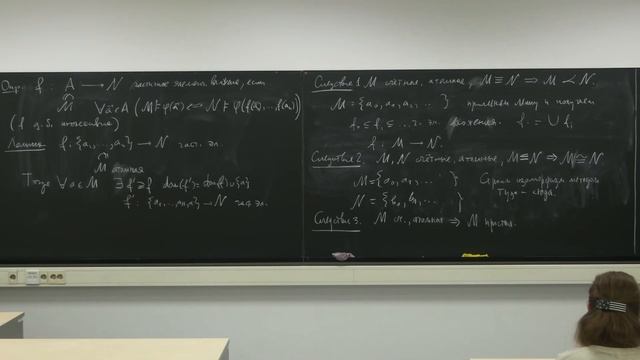 Опр. f : A → N частичное элемент. вложение, если
∩
M ∀ā∈A (M ⊨ φ(ā) ⇔ N ⊨ φ(f(a₁), …, f(aₙ)))
(f
Лемма f : {a₁, …, aₙ} → N част. эл.
∩
M атомная
Тогда ∀a∈M ∃f'⊇f dom(f') = dom(f)∪{a}
f' : {a₁, …, aₙ, a} → N част. эл.
Следствие 1. M счётная, атомная, M ≡ N ⇒ M ≺ N.
M = {a₀, a₁, a₂, … } применяем лемму и получаем
f₀ ⊆ f₁ ⊆ … ч. эл. вложения. f := ∪ fᵢ
f : M → N.
Следствие 2. M, N счётные, атомные, M ≡ N ⇒ M ≅ N
M = {a₀, a₁, … } Строим изоморфизм методом
N = {b₀, b₁, … } Туда – сюда.
Следствие 3. M сч., атомная ⇒ M простая.